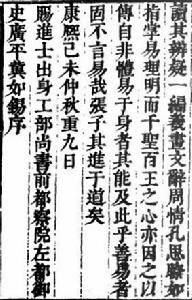 讀其辨疑一編羲畫文辭周情孔思歷如
指掌易理明而千聖百王之心亦因之以
傳自非體易于身者其能及此乎善易者
固不言易哉張子其進于道矣
康熙己未仲秋重九日
賜進士出身工部尚書前都察院左都御
史廣平冀如錫序